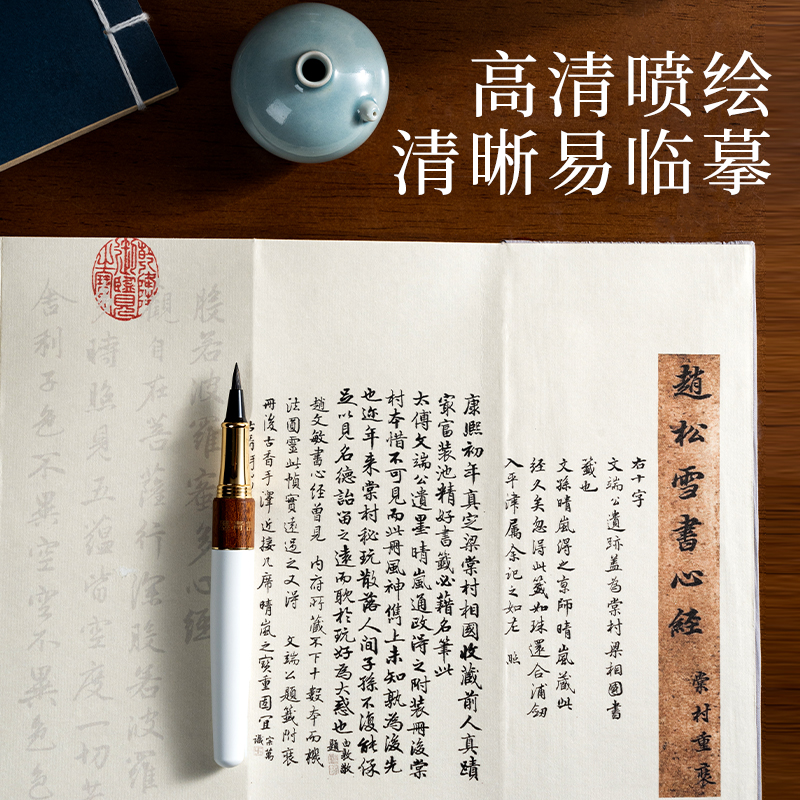 高清喷绘
清晰易临摹
趙松雪書心經
棠村重裝
右十字
文端公遺跡蓋為棠村梁相國書
籤也
文孫晴嵐得之京師晴嵐藏此
經久矣忽得此籤如珠還合浦劒
入平津屬余記之如左 照
康熙初年真定梁棠村相國收藏前人真蹟
家富裝池精好書籤必藉名筆此
太傅文端公遺墨晴嵐通政得之附裝冊後棠
村本惜不可見而此冊風神儁上未知孰為後先
也近年來棠村秘玩散落人間子孫不復能保
足以見名德詒留之遠而耽於玩好為大惑也
由敦敬題
趙文敏書心經曾見 內府所藏不下十數本而機
法圓靈此幀實遠過之又得 文端公題籤附裝
冊後古香手澤近接几席晴嵐之寶重固宜
宗萬識
般若波羅蜜多心經
觀自在菩薩行深般若波羅
時照見五蘊皆空度一切苦
舍利子色不異空空不異色色